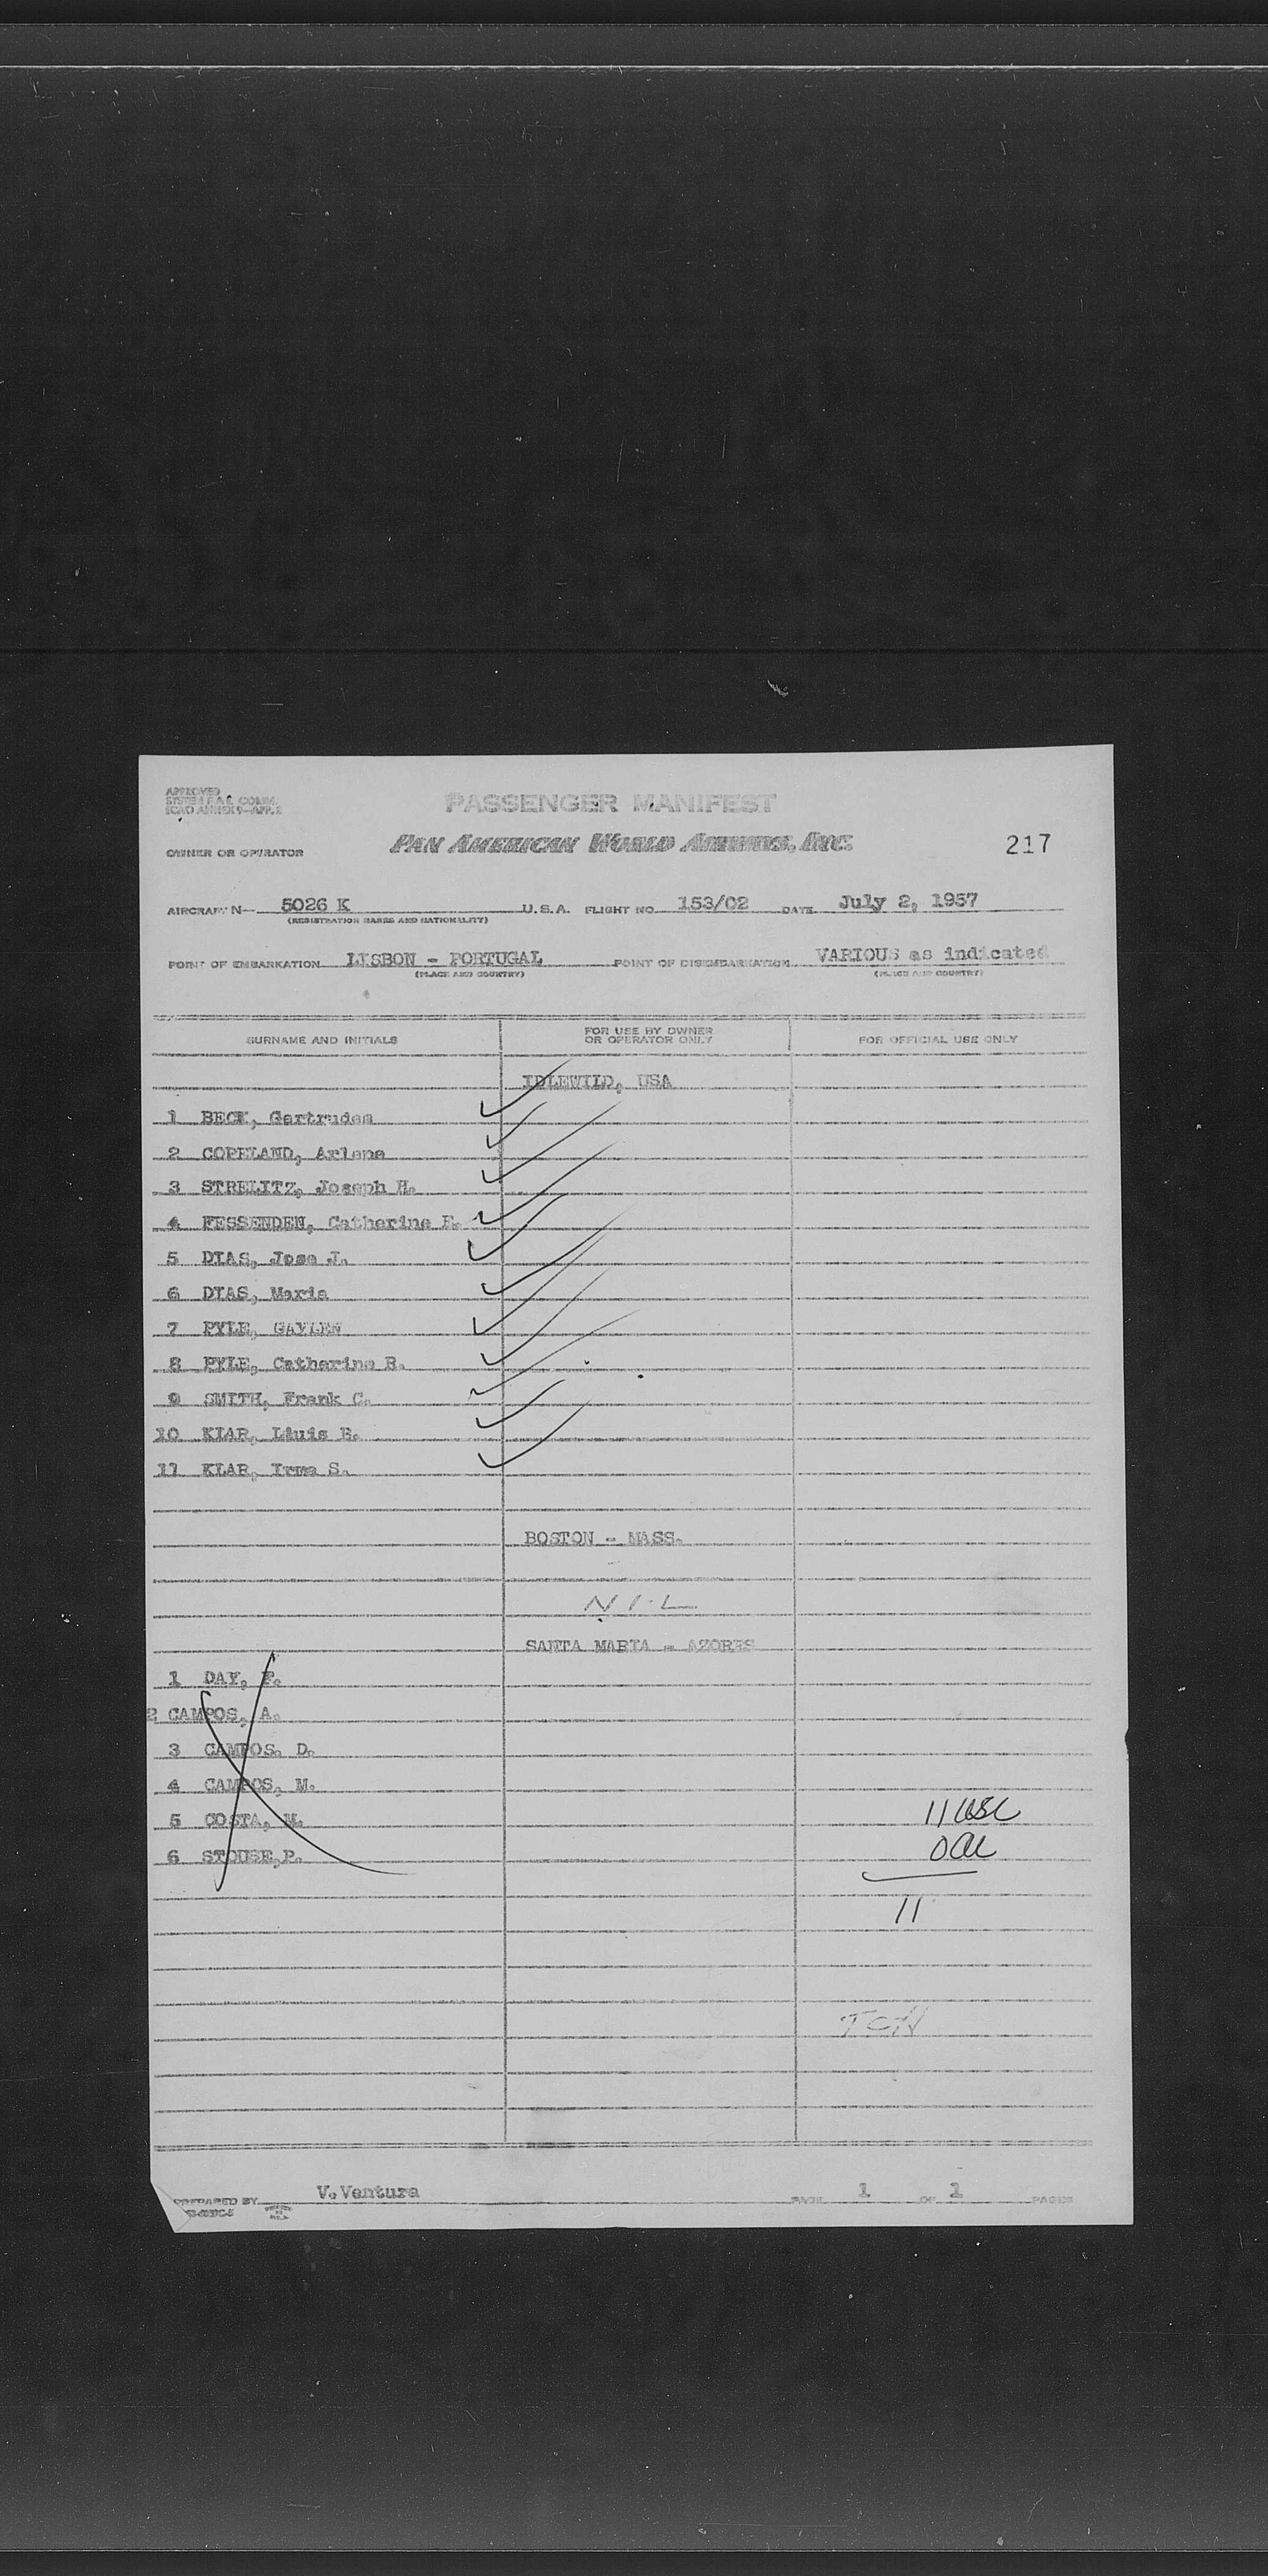 APPROVED
PASSENGER MANIFEST
PAN AMERICAN WORLD AIRWAYS, INC.
217
OWNER OR OPERATOR
AIRCRAFT N— 5026 K U.S.A. FLIGHT NO. 153/02 DATE July 2, 1957
(REGISTRATION MARKS AND NATIONALITY)
POINT OF EMBARKATION LISBON - PORTUGAL POINT OF DISEMBARKATION VARIOUS as indicated
(PLACE AND COUNTRY) (PLACE AND COUNTRY)
SURNAME AND INITIALS FOR USE BY OWNER OR OPERATOR ONLY FOR OFFICIAL USE ONLY
IDLEWILD, USA
1 BECK, Gertrudes
2 COPELAND, Arlene
3 STRELITZ, Joseph H.
4 FESSENDEN, Catherine
5 DIAS, Jose J.
6 DIAS, Maria
7 PYLE, GAYLEN
8 PYLE, Catherine R.
9 SMITH, Frank C.
10 KLAR, Louis
11 KLAR, Irma S.
BOSTON - MASS.
N I L
SANTA MARIA - AZORES
1 DAY, F.
2 CAMPOS, A.
3 CAMPOS. D.
4 CAMPOS, M.
5 COSTA, M.
6 STOUSE,P.
11 USC
0
11
PREPARED BY V.Ventura PAGE 1 OF 1 PAGES